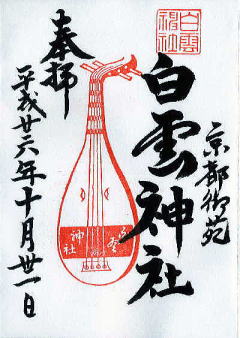 奉拝
白雲神社
京都御苑
白雲神社
平成廿六年十月卅一日
白雲
神社